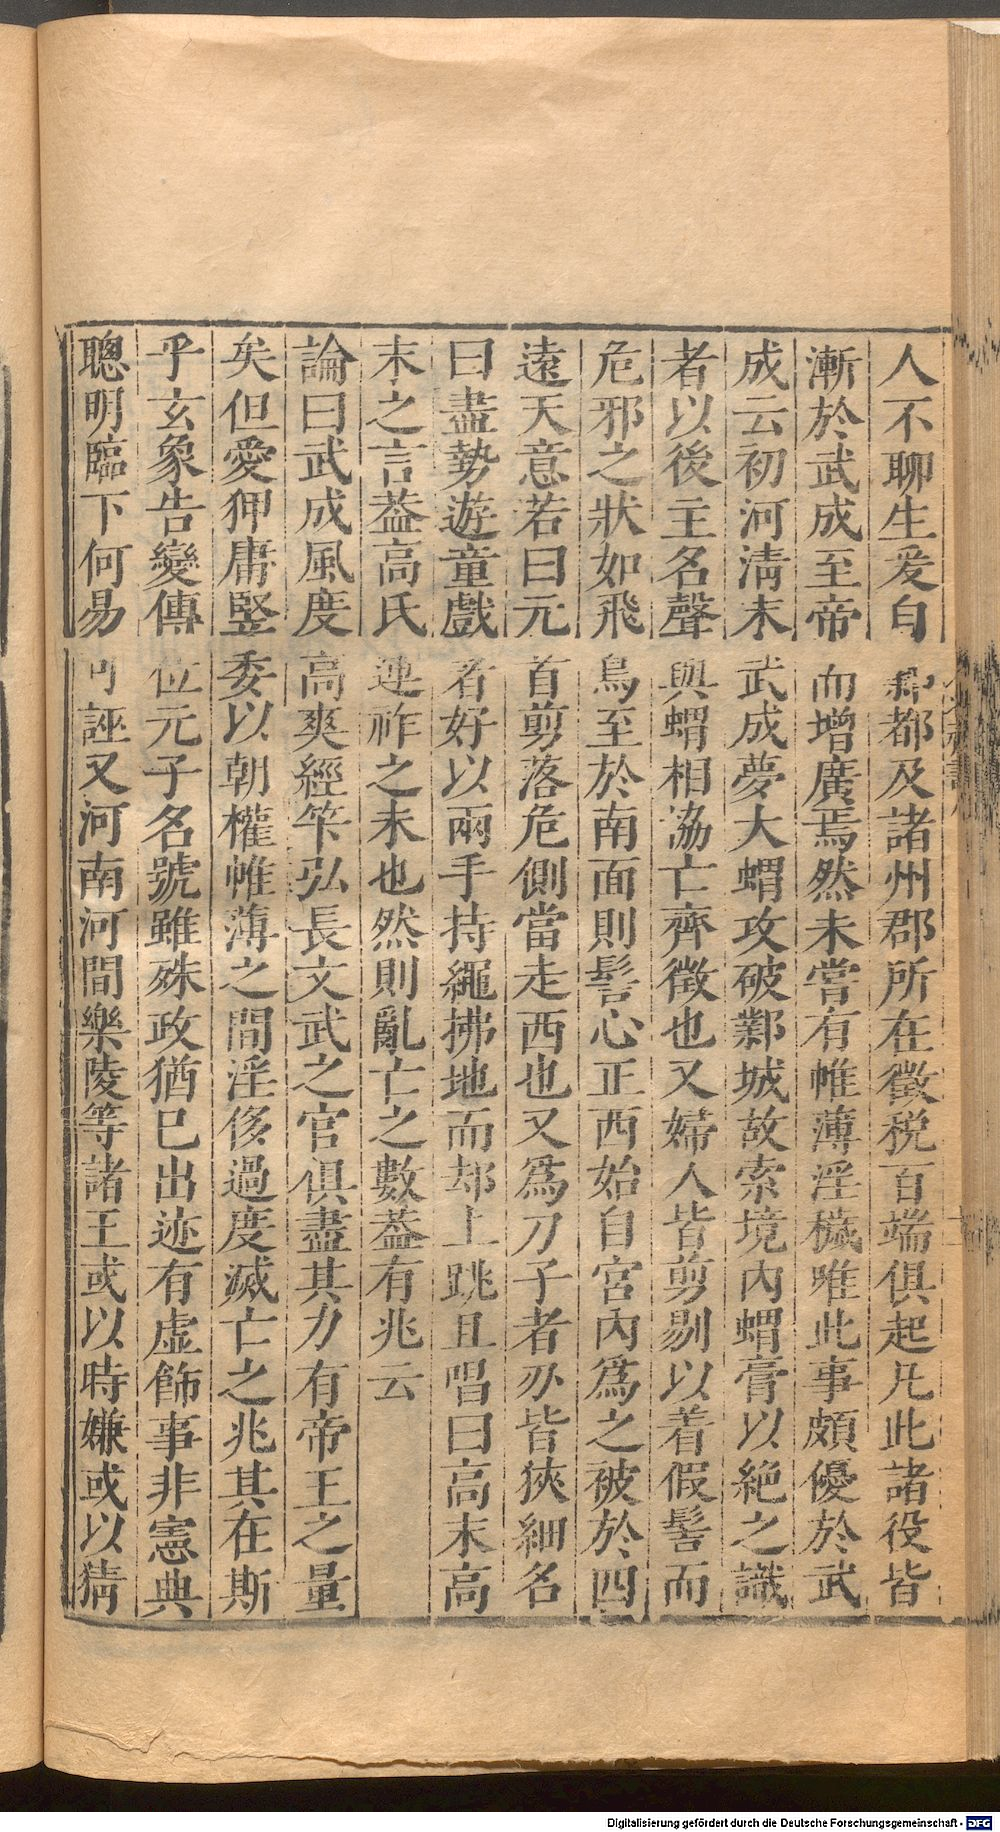 人不聊生爰自鄴都及諸州郡所在徵税百端俱起凡此諸役皆
漸於武成至帝而增廣焉然未嘗有帷薄淫穢唯此事頗優於武
成云初河清末武成夢大蝟攻破鄴城故索境内蝟膏以絶之識
者以後主名聲與蝟相恊亡齊徵也又婦人皆剪剔以着假髻而
危邪之狀如飛鳥至於南面則髻心正西始自宮内爲之被於四
遠天意若曰元首剪落危側當走西也又爲刀子者刅皆狹細名
曰盡勢遊童戲者好以兩手持繩拂地而却上跳且唱曰高末高
末之言葢高氏連祚之末也然則亂亡之數葢有兆云
論曰武成風度高爽經筭弘長文武之官俱盡其力有帝王之量
矣但愛狎庸豎委以朝權帷薄之間淫侈過度滅亡之兆其在斯
乎玄象告變傳位元子名號雖殊政猶已出迹有虚飾事非憲典
聰明臨下何易可誣又河南河間樂陵等諸王或以時嫌或以猜
Digitalisierung gefördert durch die Deutsche Forschungsgemeinschaft - DFG